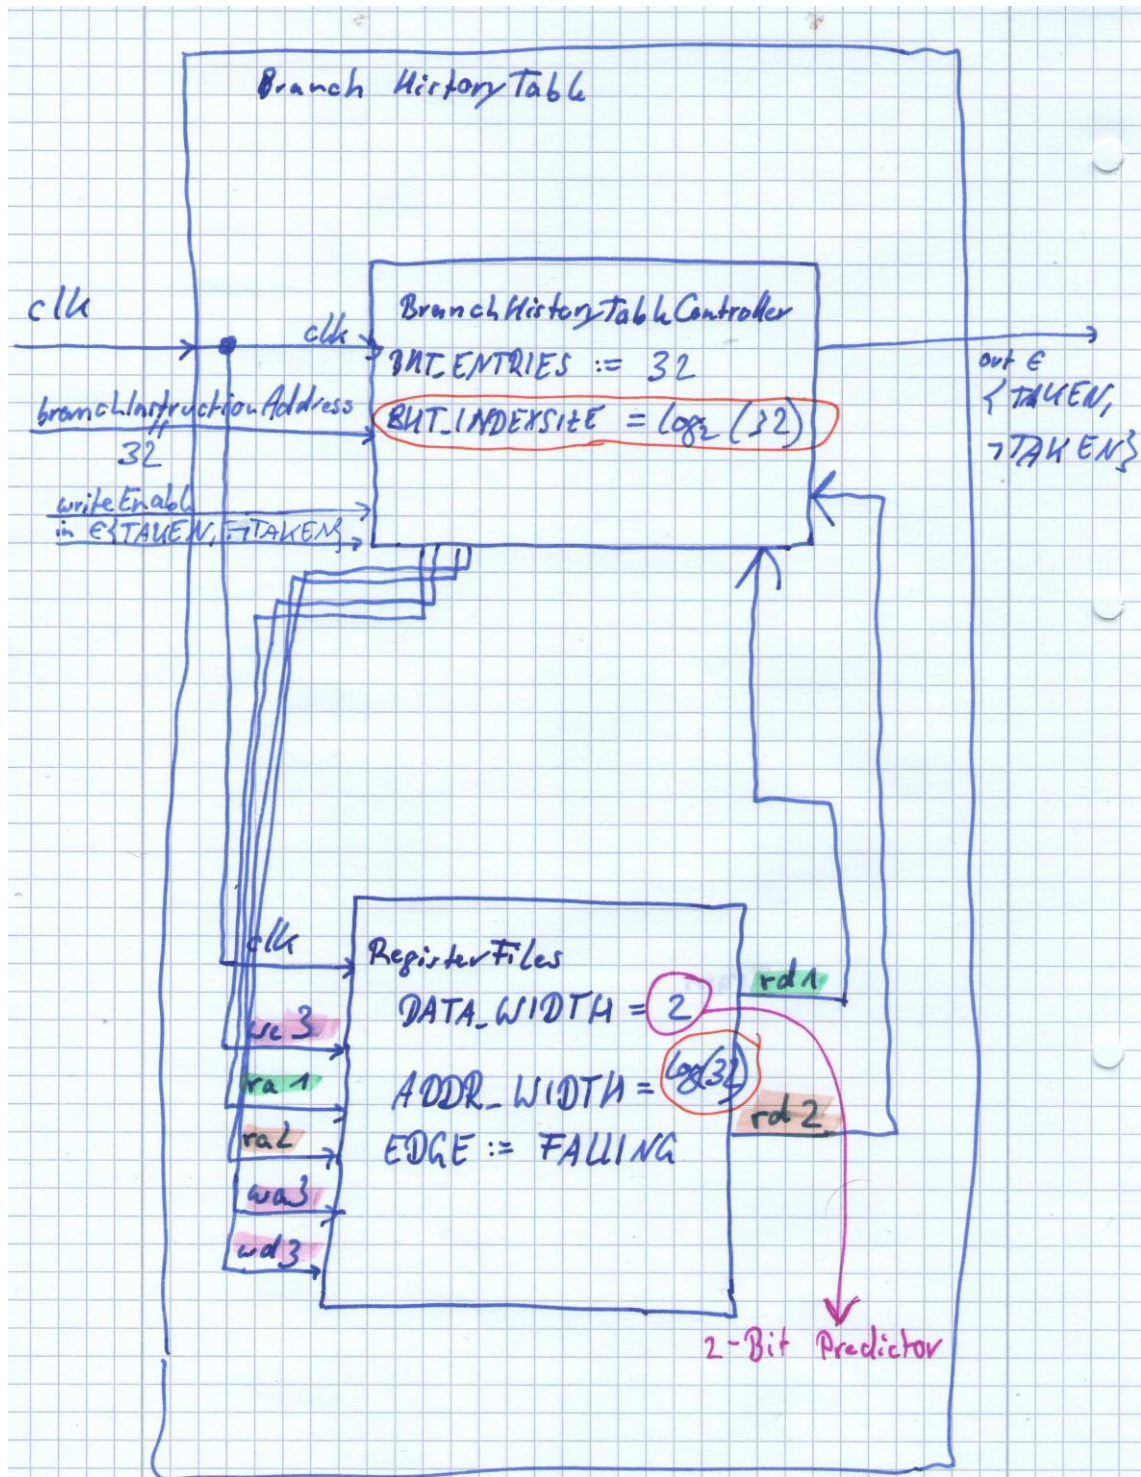 Branch HistoryTable
clk
clk
BranchHistoryTableController
BHT_ENTRIES := 32
BHT_INDEXSIZE = log₂ (32)
branchInstructionAddress
32
writeEnabl
in ∈{TAKEN, ¬TAKEN}
out ∈
{TAKEN,
¬TAKEN}
clk
we3
ra1
ra2
wa3
wd3
RegisterFiles
DATA_WIDTH = 2
ADDR_WIDTH = log(32)
EDGE := FALLING
rd1
rd2
2-Bit Predictor